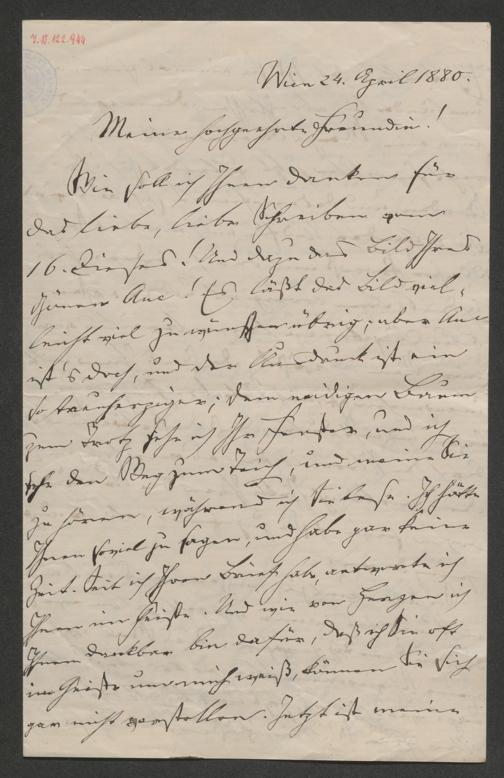 I.N. 122.944
Wien 24. April 1880.
Meine hochgeehrte Freundin!
Wie soll ich Ihnen danken für
das liebe, liebe Schreiben vom
16. dieses! Und dazu das Bild Ihres
Aue! Es läßt das Bild viel-
leicht viel zu wünschen übrig, aber Aue
ist's doch, und der Ausdruck ist ein
so treuherziger; dem neidigen Baum
zum Trotz sehe ich Ihr Fenster, und ich
sehe den Weg zum Teich, und meine Sie
zu hören, während ich Sie lese. Ich hätte
Ihnen soviel zu sagen, und habe gar keine
Zeit. Seit ich Ihren Brief habe, antworte ich
Ihnen im Geiste. Und wie von Herzen ich
Ihnen dankbar bin dafür, daß ich Sie oft
im Geiste um mich weiß, können Sie sich
gar nicht vorstellen. Jetzt ist meine